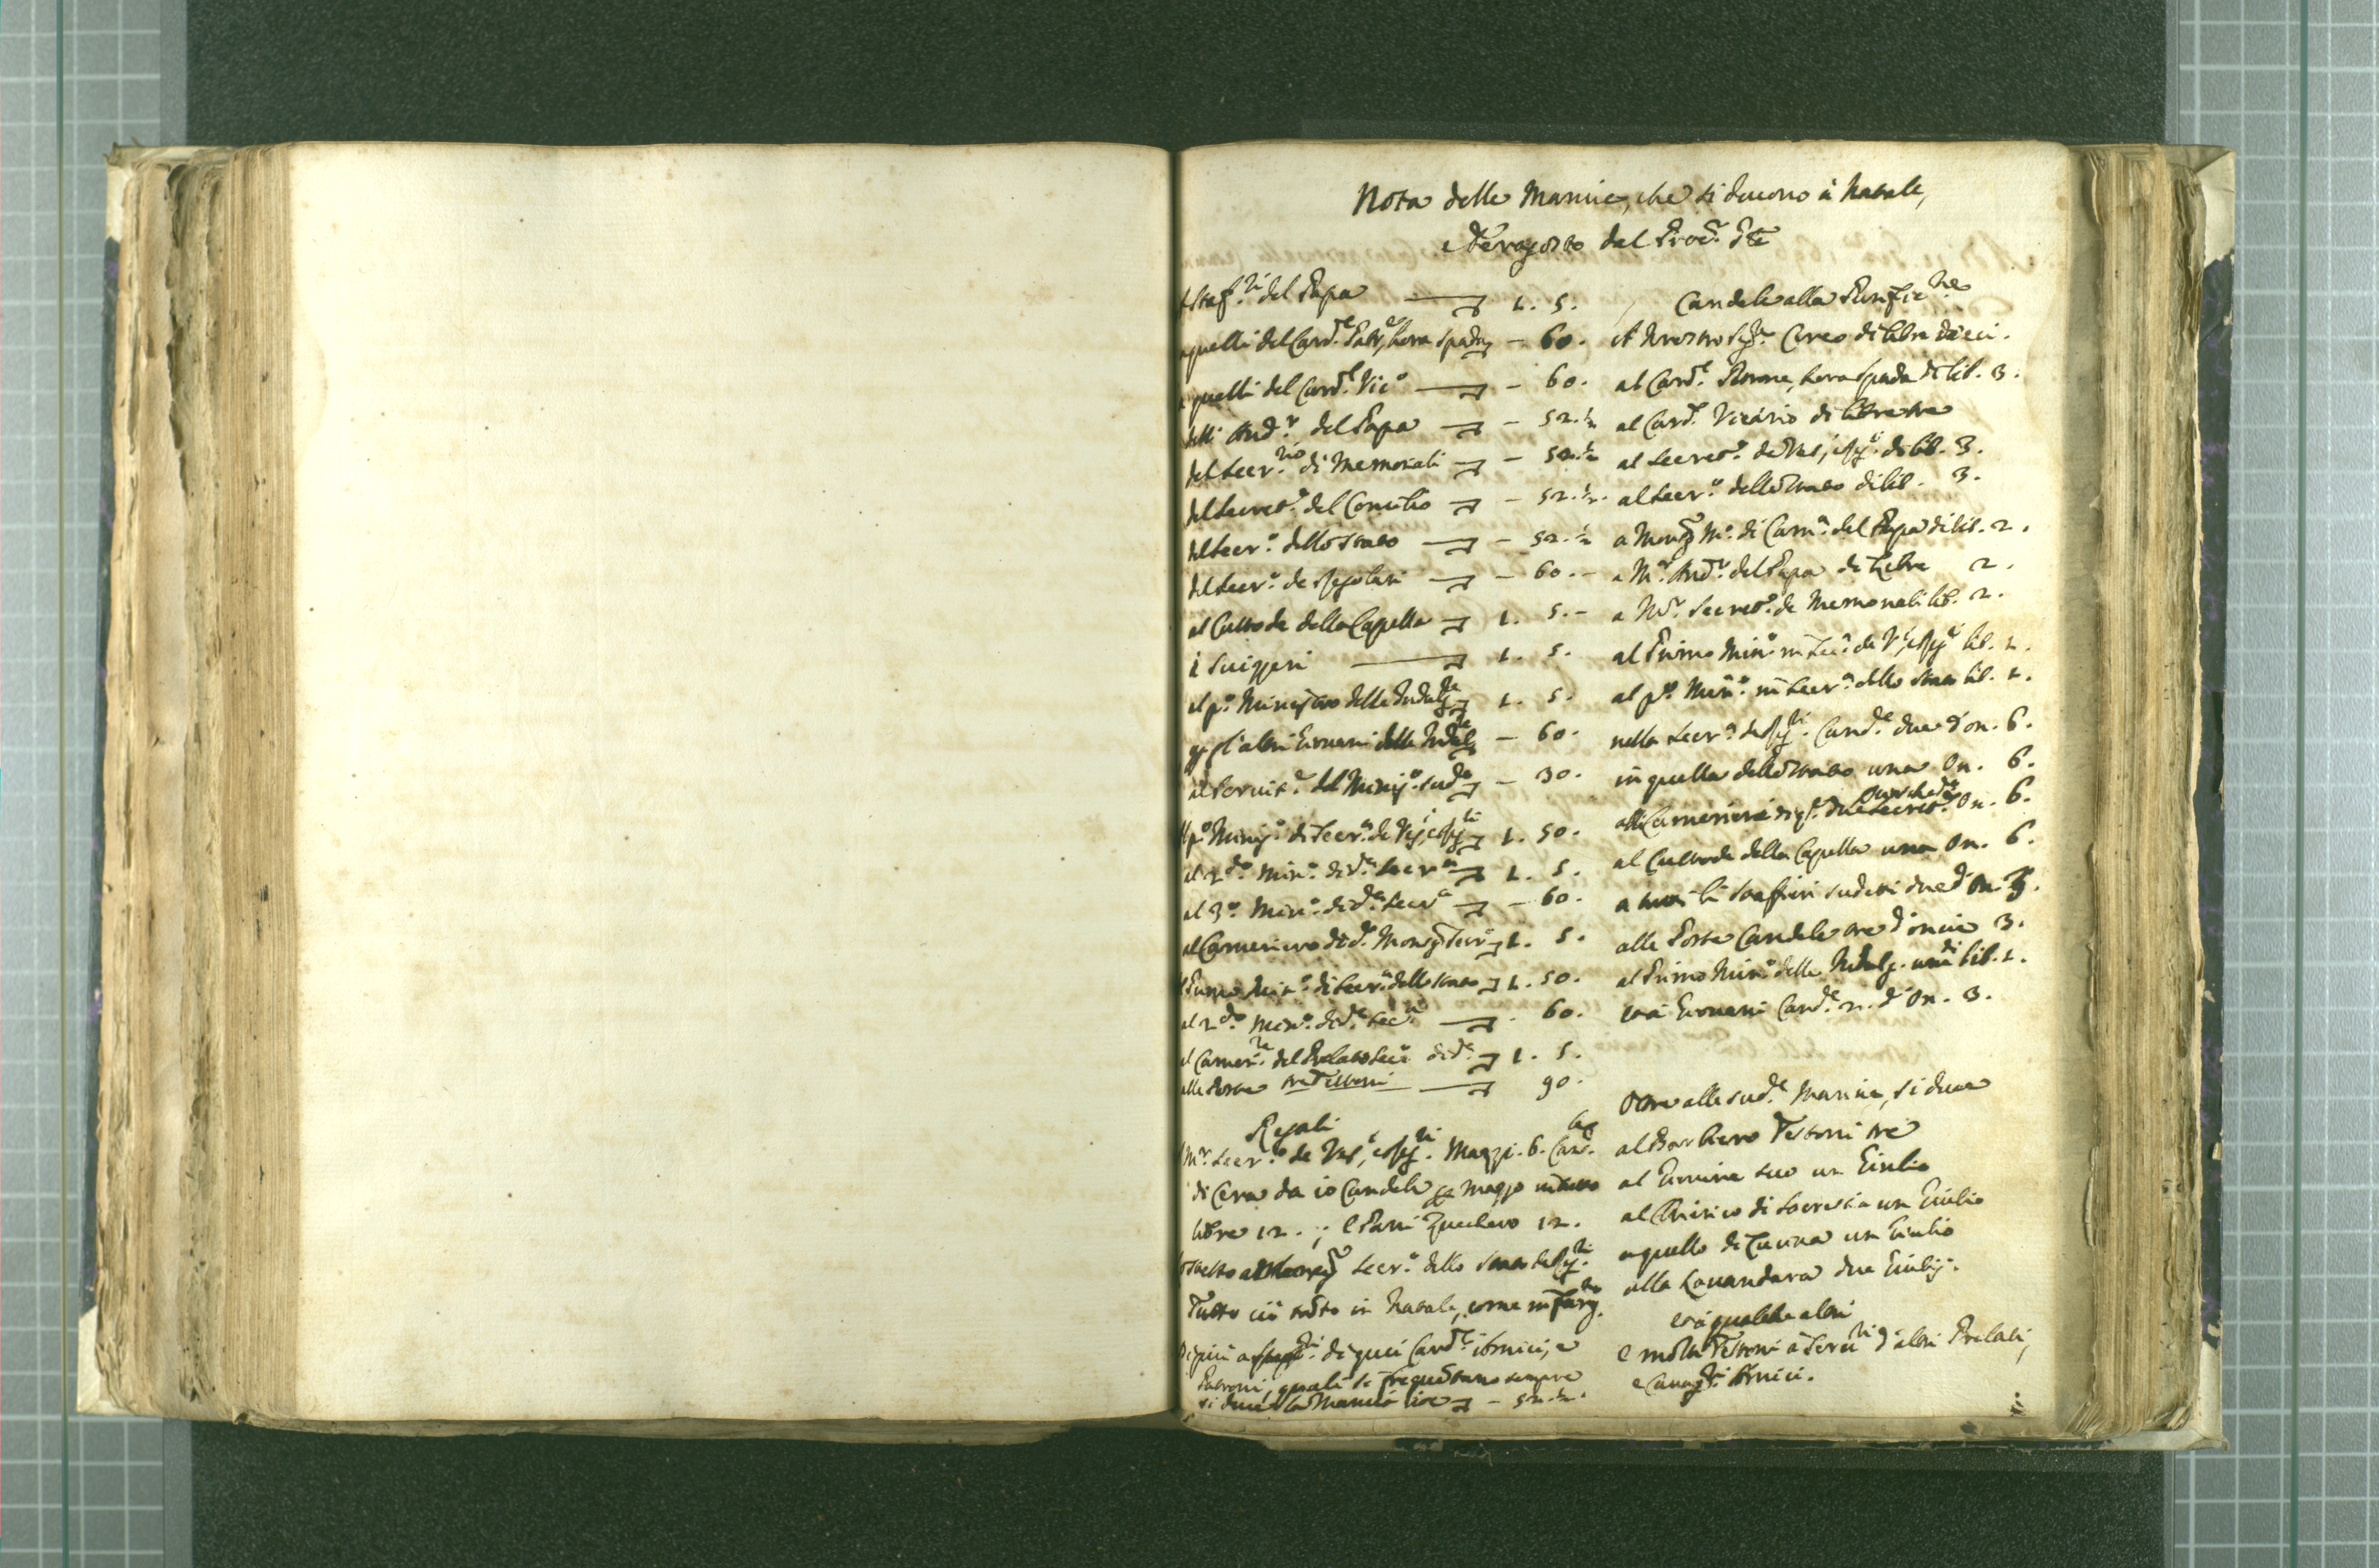 Nota delle Mancie, che si danno à Natale,
e Feragosto dal Proc.r Gñle
A Staf.ri del Papa 1. 5.
a quelli del Card.le Patr.e, hora Spada - 60.
a quelli del Card.le Vic.o - 60.
delli Aud.r del Papa - 52.½
del Secr.rio di Memoriali - 52.½
del Secret.o del Concilio - 52.½.
del Secr.o dello Stato - 52.½
del Secr.o de Regolari - 60.-
al Custode della Capella 1. 5.-
à Suizzeri 1. 5.
al p.o Ministro delle Indulg.ze 1. 5.
gl'altri Giovani delle Indulg.ze - 60.
al Servit.e del Minis.o sud.o - 30.
Al p.o Minis.o di Secr.a de Ves.i, e Reg.ri 1. 50.
al 2.do Min.o di d.a Secr.a 1. 5.
al 3.o Min.o di d.a Secr.a - 60.
al Cameriero di d.o Mons. Secr.o 1. 5.
al Primo Min.o di Secr.a dello Stato 1. 50.
al 2.do Min.o di d.a Sec.a 60.
al Camer.re del Prelato Sec.o di d.a 1. 5.
alle Poste tre Testoni 90.
Regali
A M.r Secr.o de Ves.i, e Reg.ri Mazzi. 6. Cand.
di Cera da 10 Candele per Mazzo in tutto
libre 12. ; e Pani Zucchero 12.
Secr.o dello Stato de Reg.ri
Tutto ciò tanto in Natale, come in Ferag.to
Di più a di quei Card.li Amici, e
Patroni, quali si frequentano sempre
si dà la Mancia cioè - 52.½.
Candele alla Purific.ne
A Nostro Sig.re Cereo di libre dieci.
al Card.le Nerone, hora Spada di lib. 3.
al Card. Vicario di libre tre
al Secret.o de Ves.i, e Reg.i di lib. 3.
al Secr.o dello Stato di lib. 3.
a Mons. M.o di Cam.a del Papa di lib. 2.
a M.r Aud.r del Papa di Libre 2.
a M.r Secret.o de Memoriali lib. 2.
al Primo Min.o in Sec.a de V.i, e Reg.i lib. 1.
al p.o Min.o in Secr.a dello Stato lib. 1.
nella Secr.a de Reg.ri Cand.e due d'on. 6.
in quella dello Stato una On. 6.
alli Camerieri
al Custode della Capella una On. 6.
a tutti li Staffieri sudetti due d'On. 3.
alle Poste Candele tre d'oncie 3.
al Primo Min.o delle Indulg. una di lib. 1.
et à Giovani Cand.e n. 2. d'On. 3.
Oltre alle sud.e Mancie, si dà
al Barbiero Testoni tre
al Giovine suo un Giulio
al Chirico di Sacrestia un Giulio
a quello di Cucina un Giulio
alla Lavandara due Giulij.
et à qualche altri
e molti Testoni à Servi.ri d'altri Prelati,
e Amici.